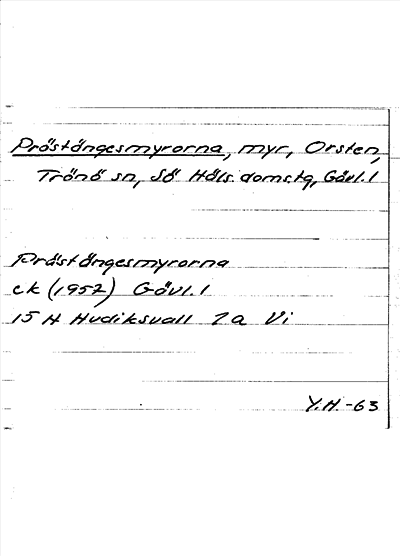 Prästängesmyrorna, myr, Orsten,
Trönö sn, Sö Häls. domstg, Gävl. l
Prästängesmyrorna
ek (1952) Gävl. l
15 H Hudiksvall 2a Vi
Y.H. -63